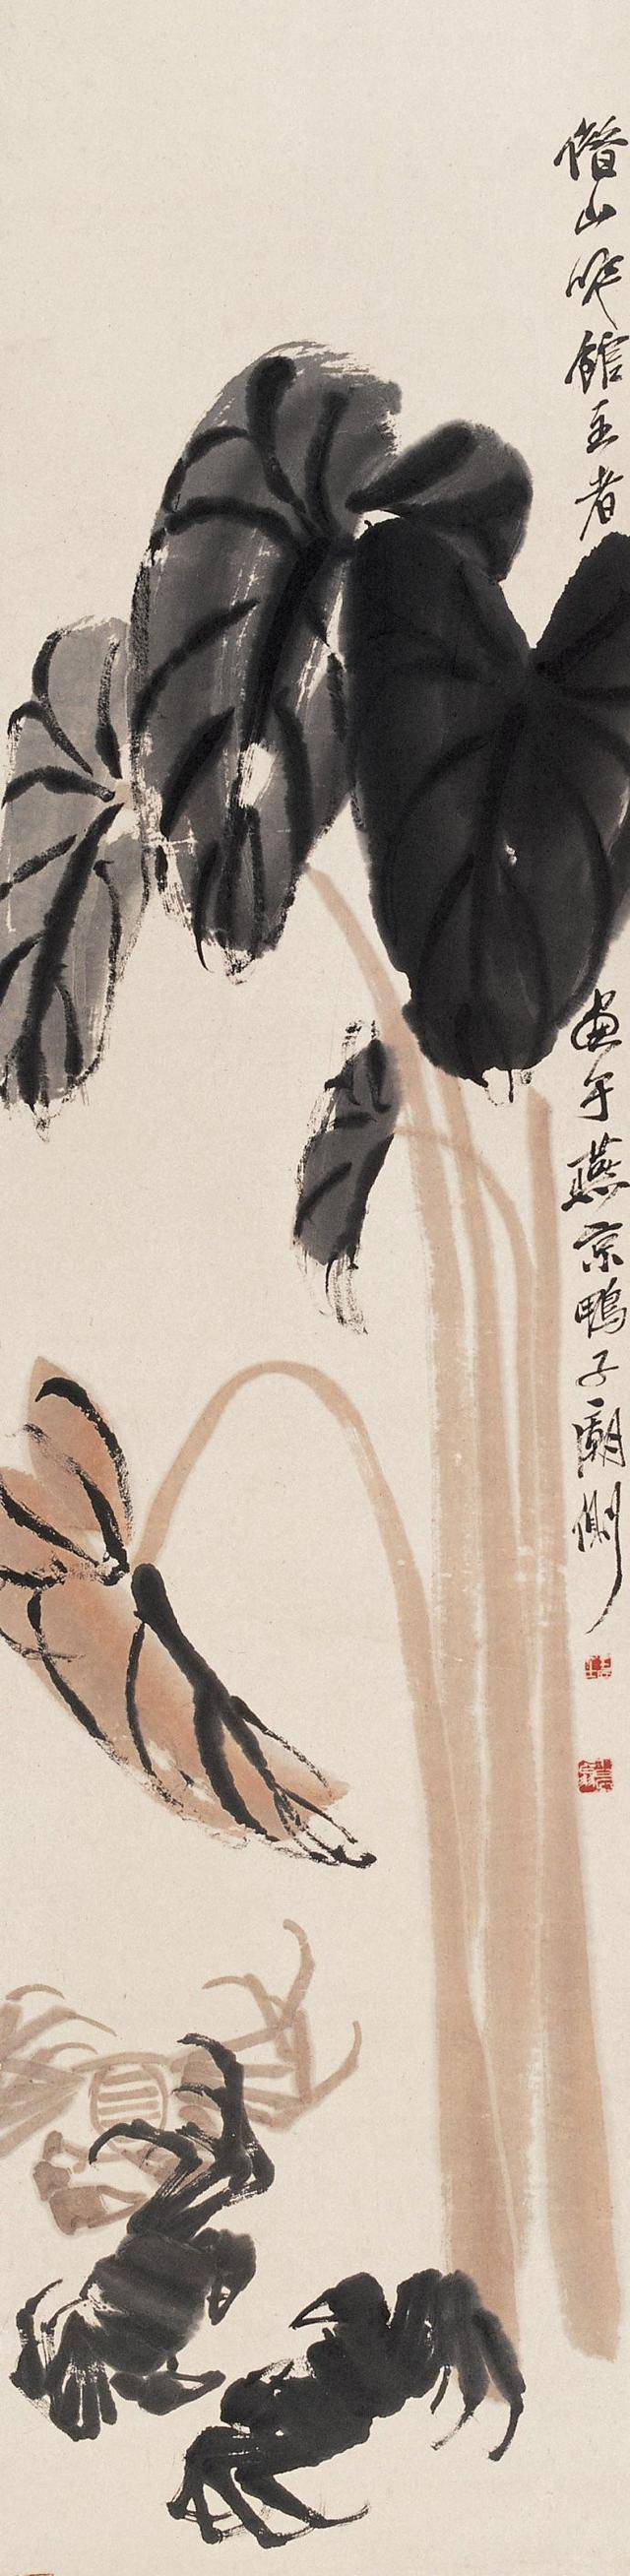 借山吟館主者
畫于燕京鴉子廟側